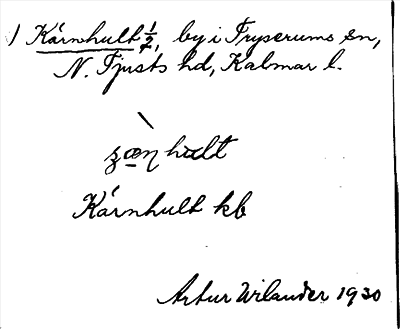 ) Kårnhult 1/2, by i Tryserums sn,
N. Tjusts hd, Kalmar l.
hult
Kårnhult kb
Artur Wilander 1930